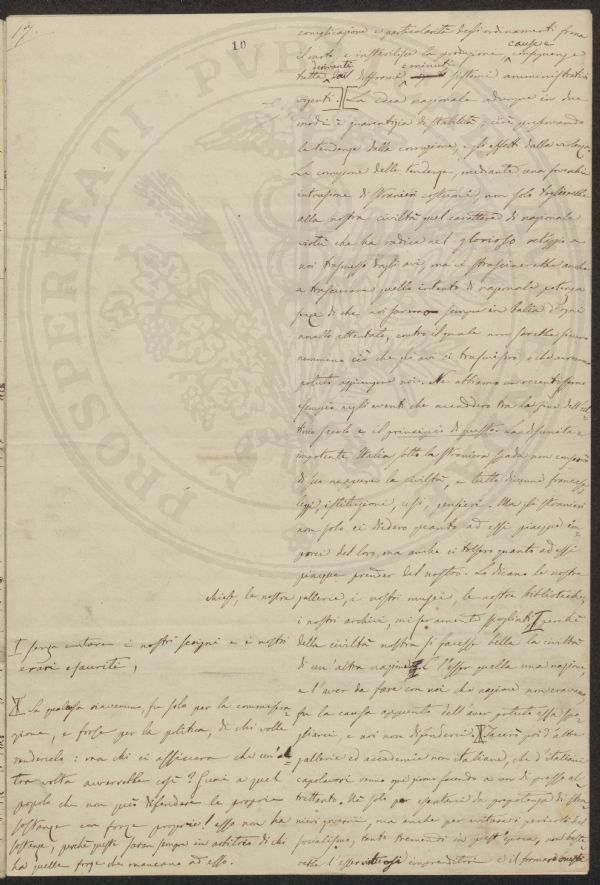 17.
10
complicazione e particolarità degli ordinamenti frena
il moto e insterilisce la produzione, cause e conseguenze
tutte derivanti dal difforme e minuti sistemi amministrativi
vigenti. La lega nazionale adunque in due
modi è guarentigia di stabilità, cioè preservando
le tendenze dalla corruzione, e gli effetti dalla violenza.
La corruzione delle tendenze, mediante una soverchia
intrusione di stranieri costumi, non solo toglierebbe
alla nostra civiltà quel carattere di nazionale
virtù che ha radice nel glorioso retaggio a
noi trasmesso dagli avi, ma ci strascinerebbe anche
a trascurare quello intento di nazionale potenza
senza di che noi saremo sempre in balia d'ogni
novello attentato, contro il quale non sarebbe sicuro
nemmeno ciò che gli avi ci trasmisero o che avremmo
potuto aggiungere noi. Ne abbiamo un recentissimo
esempio negli eventi che accaddero tra la fine dell'ul-
timo secolo e il principio di questo. La disunita e
impotente Italia sotto la straniera spada non conservò
di sue neppure la civiltà, e tutto divenne francese,
leggi, istituzioni, usi, pensieri. Ma gli stranieri
non solo ci diedero quanto ad essi piacque im-
porci del loro, ma anche ci tolsero quanto ad essi
piacque prender del nostro. Lo dicano le nostre
chiese, le nostre gallerie, i nostri musei, le nostre biblioteche,
i nostri archivi, miseramente spogliati, perchè
della civiltà nostra si facesse bella la civiltà
di un'altra nazione. E l'esser quella una nazione,
e l'aver da fare con noi che nazione non eravamo,
fu la causa appunto dell'aver potuto essa spo-
gliarci, e noi non difenderci. Taccio poi d'altre
gallerie ed accademie non italiane, che d'italiani
capolavori vanno ogni giorno facendo a un di presso al-
trettanto. Nè solo per ripararci da prepotenza di stra-
nieri governi, ma anche per evitare i pericoli del
socialismo, tanto tremendi in quest'epoca, non baste-
rebbe l'essere
senza contare i nostri scrigni e i nostri
erari esauriti,
Le qualcosa riavemmo, fu solo per la commisera-
zione, e forse per la politica, di chi volle
rendercelo: ma chi ci assicura che un'al-
tra volta avverrebbe così? Guai a quel
popolo che non può difendere le proprie
sostanze con forze proprie! esso non ha
sostanze, perchè queste saran sempre in arbitrio di chi
ha quelle forze che mancano ad esso.
PROSPERITATI PVBLICAE